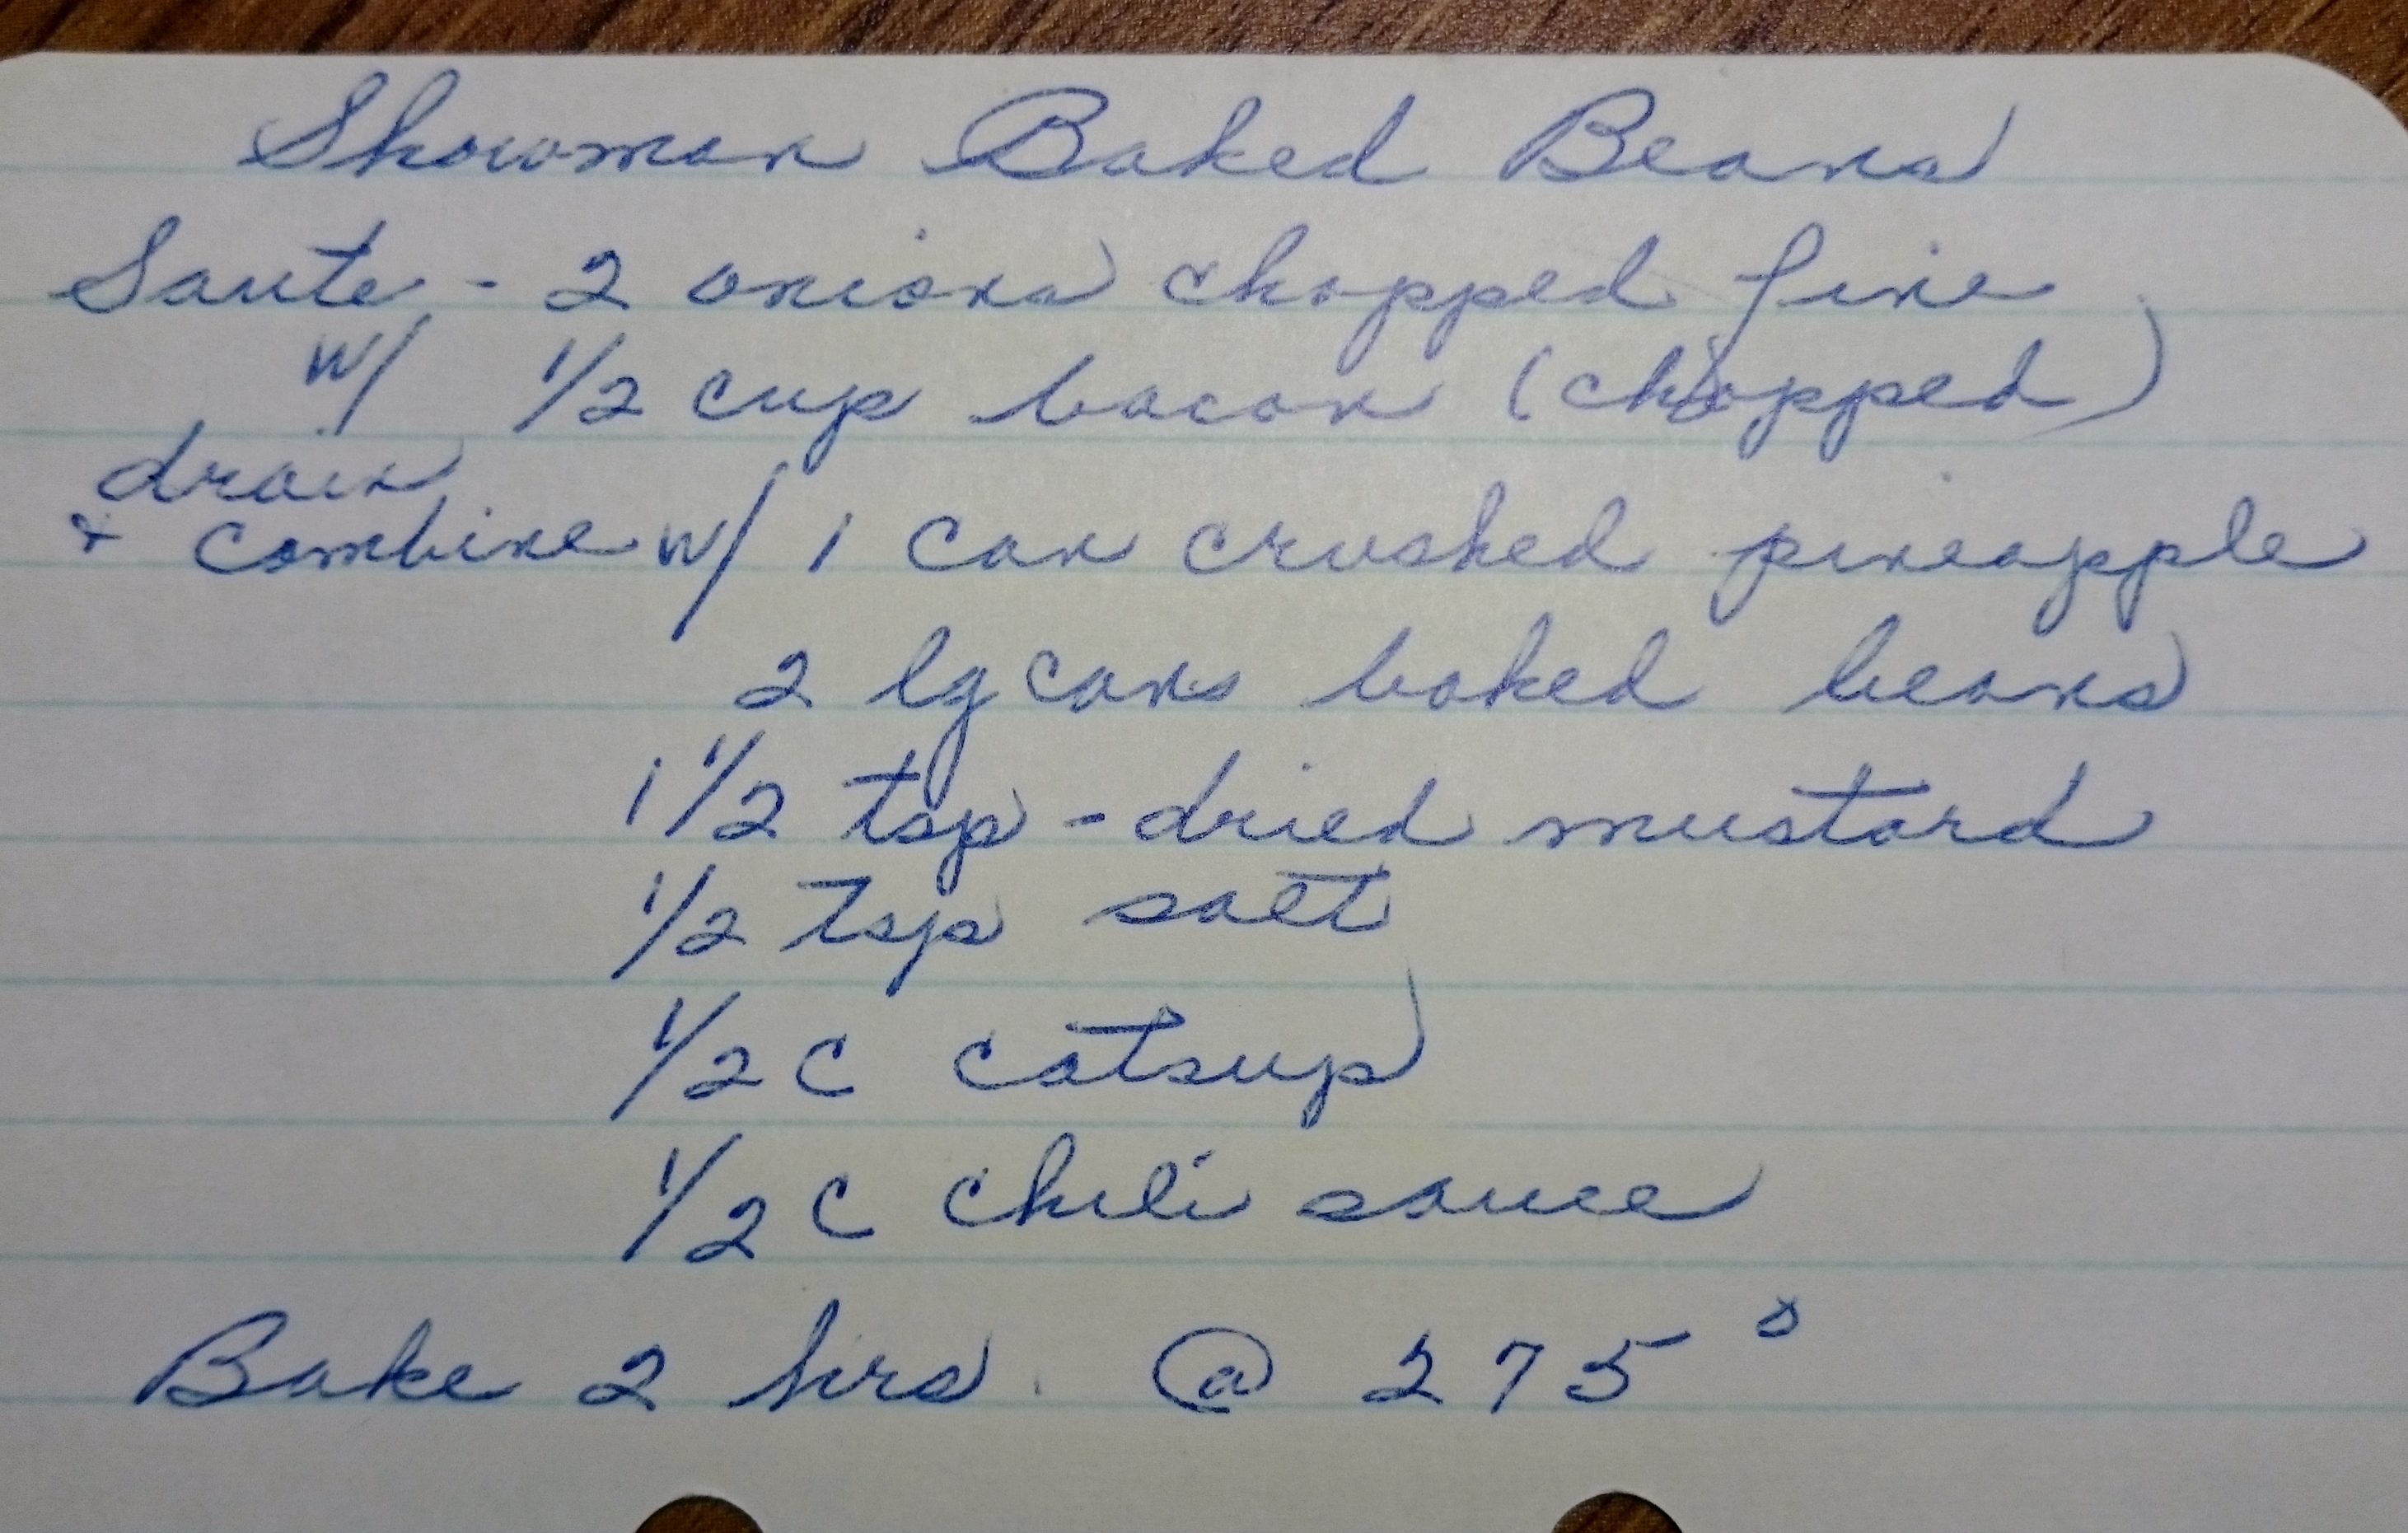 Showman Baked Beans
Saute - 2 onions chopped fine
w/ 1/2 cup bacon (chopped)
drain
& combine w/ 1 can crushed pineapple
2 lg cans baked beans
1 1/2 tsp - dried mustard
1/2 tsp salt
1/2 C catsup
1/2 C chili sauce
Bake 2 hrs. @ 275°